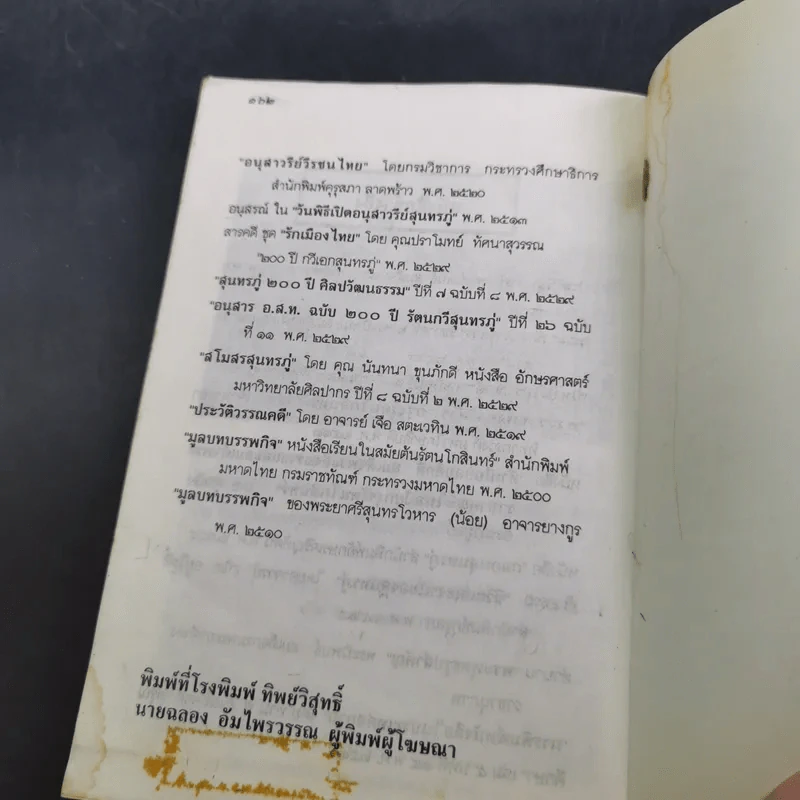 ๑๖๒
"อนุสาวรีย์วีรชนไทย" โดยกรมวิชาการ กระทรวงศึกษาธิการ
สำนักพิมพ์คุรุสภา ลาดพร้าว พ.ศ. ๒๕๒๐
อนุสรณ์ ใน "วันพิธีเปิดอนุสาวรีย์สุนทรภู่" พ.ศ. ๒๕๑๓
สารคดี ชุด "รักเมืองไทย" โดย คุณปราโมทย์ ทัศนาสุวรรณ
"๒๐๐ ปี กวีเอกสุนทรภู่" พ.ศ. ๒๕๒๙
"สุนทรภู่ ๒๐๐ ปี ศิลปวัฒนธรรม" ปีที่ ๗ ฉบับที่ ๘ พ.ศ. ๒๕๒๙
"อนุสาร อ.ส.ท. ฉบับ ๒๐๐ ปี รัตนกวีสุนทรภู่" ปีที่ ๒๖ ฉบับ
ที่ ๑๑ พ.ศ. ๒๕๒๙
"สโมสรสุนทรภู่" โดย คุณ นันทนา ขุนภักดี หนังสือ อักษรศาสตร์
มหาวิทยาลัยศิลปากร ปีที่ ๘ ฉบับที่ ๒ พ.ศ. ๒๕๒๙
"ประวัติวรรณคดี" โดย อาจารย์ เจือ สตะเวทิน พ.ศ. ๒๕๑๙
"มูลบทบรรพกิจ" หนังสือเรียนในสมัยต้นรัตนโกสินทร์" สำนักพิมพ์
มหาดไทย กรมราชทัณฑ์ กระทรวงมหาดไทย พ.ศ. ๒๕๐๐
"มูลบทบรรพกิจ" ของพระยาศรีสุนทรโวหาร (น้อย) อาจารยางกูร
พ.ศ. ๒๕๑๐
พิมพ์ที่โรงพิมพ์ ทิพย์วิสุทธิ์
นายฉลอง อัมไพรวรรณ ผู้พิมพ์ผู้โฆษณา